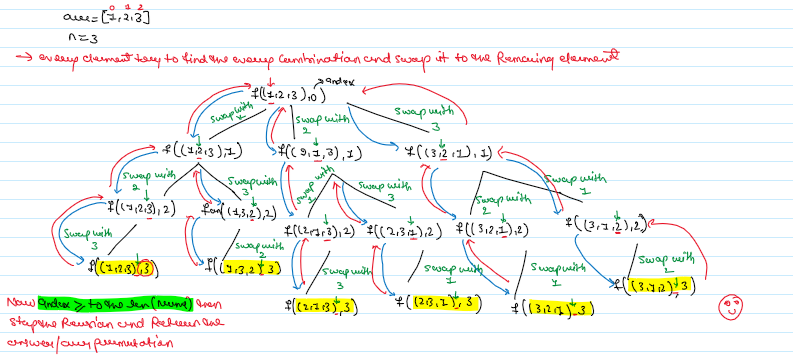 0 1 2
arr=[1,2,3]
n=3
→ every element try to find the every Combination and swap it to the Remaining element
f((1,2,3),0) index
swap with 1
swap with 2
swap with 3
f((1,2,3),1) f((2,1,3),1) f((3,2,1),1)
swap with 2
swap with 3
swap with 1
swap with 3
swap with 2
swap with 1
f((1,2,3),2) f((1,3,2),2) f((2,1,3),2) f((2,3,1),2) f((3,2,1),2) f((3,1,2),2)
swap with 3
swap with 2
swap with 3
swap with 1
swap with 1
swap with 2
f((1,2,3),3) f((1,3,2),3) f((2,1,3),3) f((2,3,1),3) f((3,2,1),3) f((3,1,2),3)
Now index ≥ to the len(nums) then
stop the Recursion and Return the
answer/our permutation